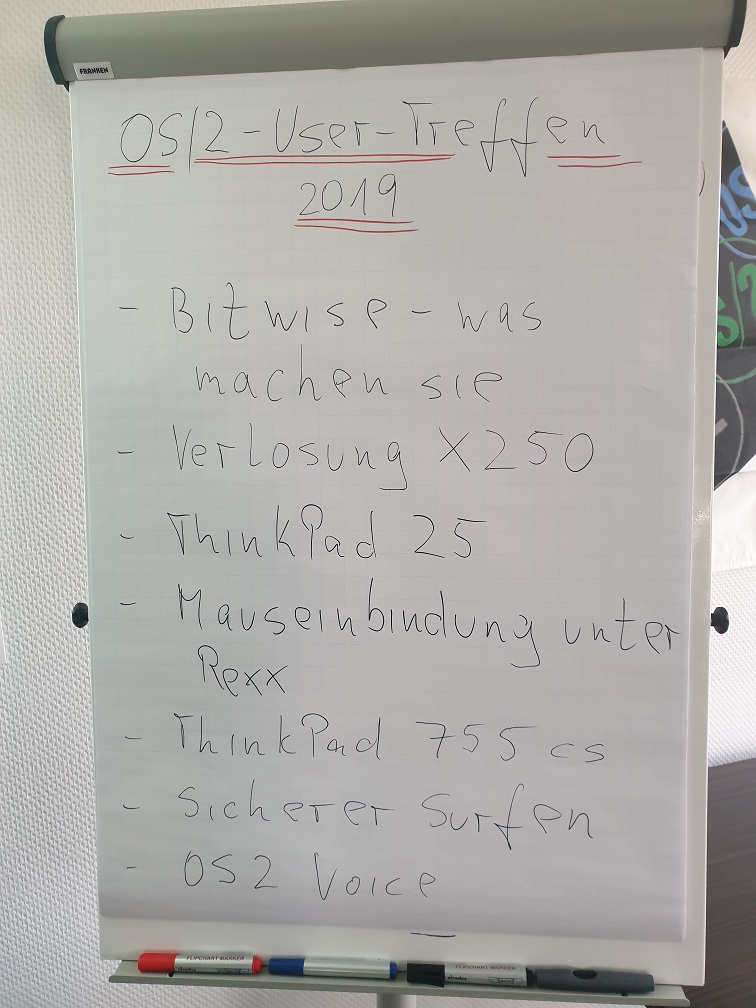 FRANKEN
OS/2-User-Treffen
2019
- Bitwise - was
machen sie
- Verlosung X250
- ThinkPad 25
- Mauseinbindung unter
Rexx
- ThinkPad 755 cs
- Sicherer Surfen
- OS2 Voice
FLIPCHART MARKER
FLIPCHART MARKER